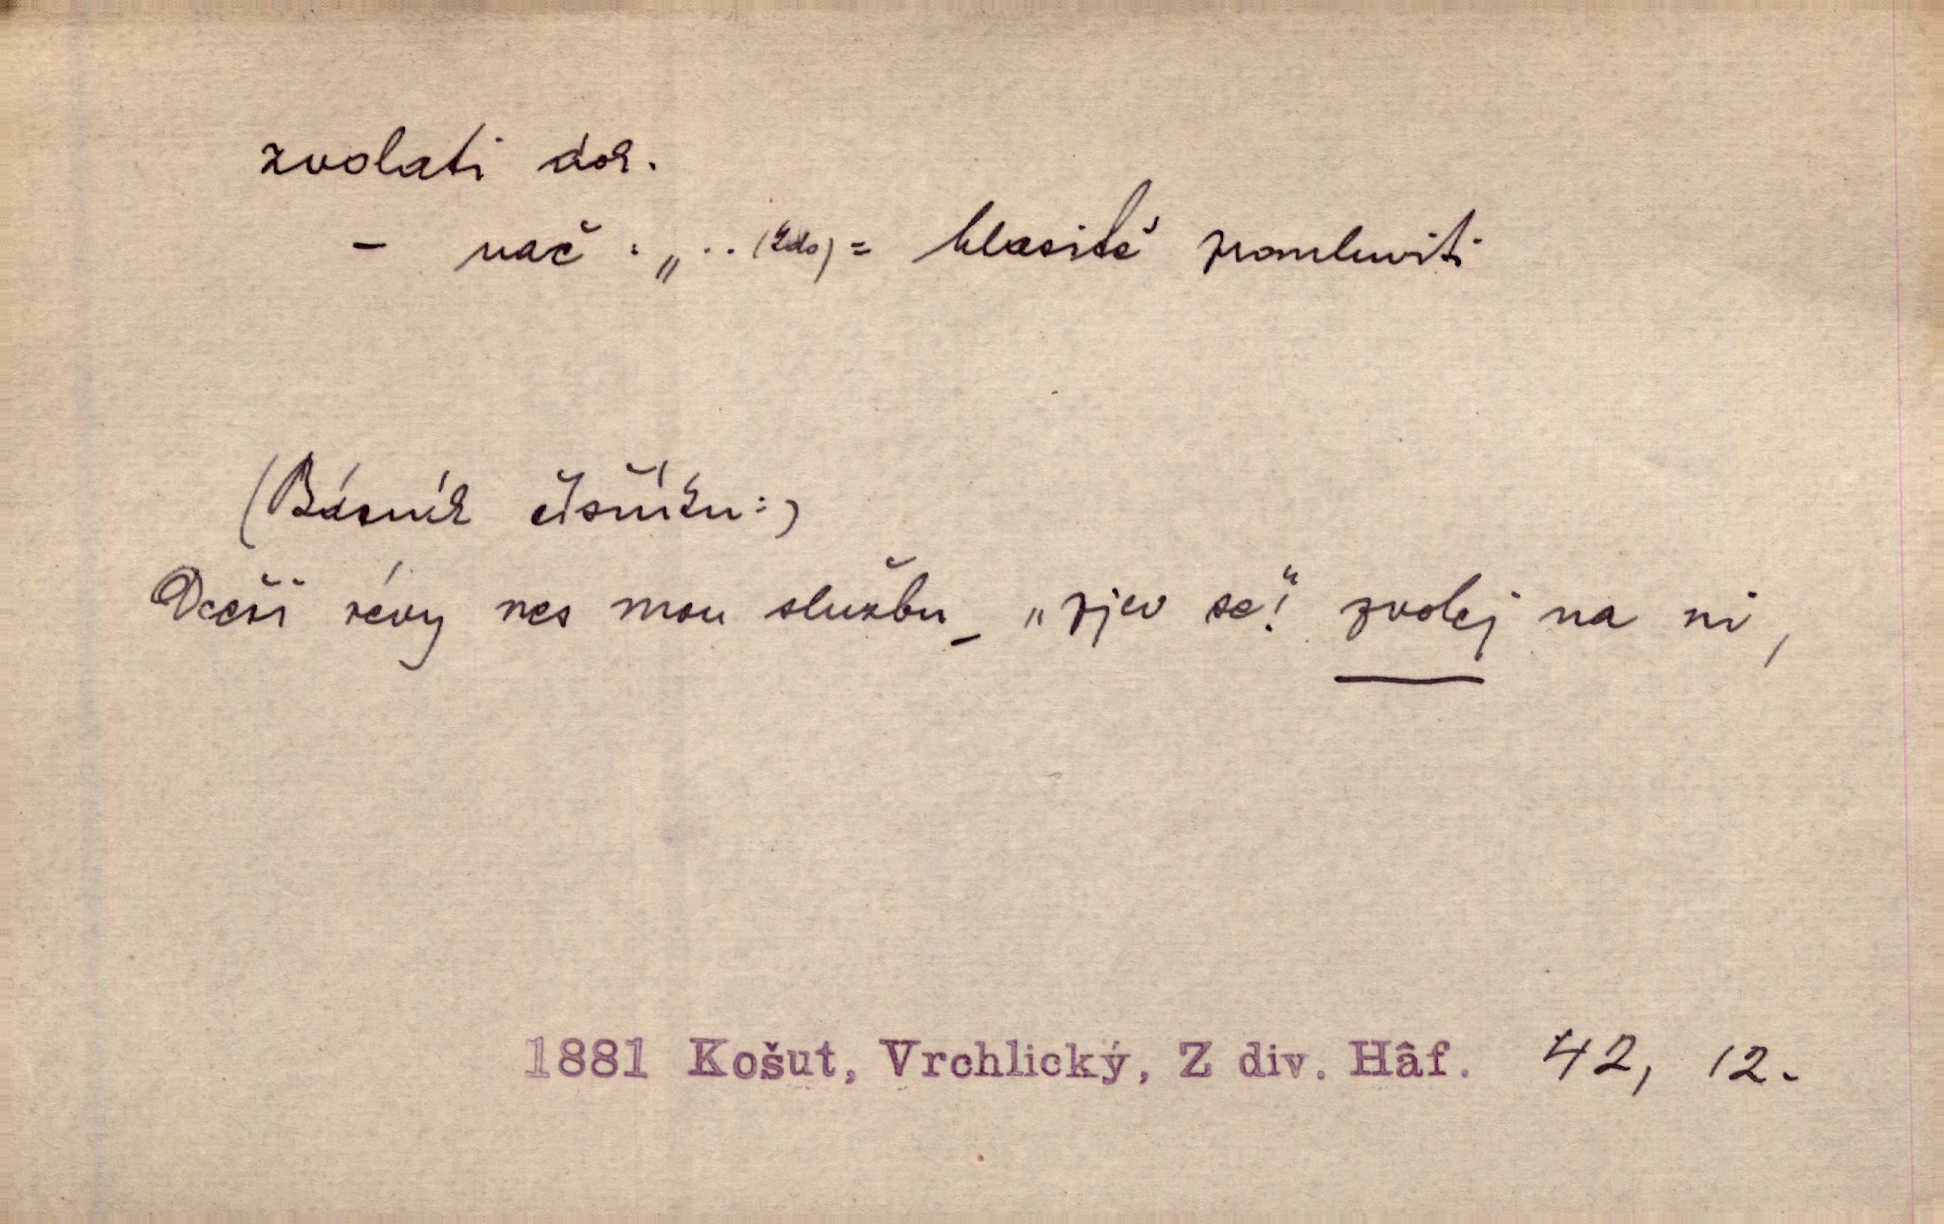 zvolati dok.
– nač : „.. (kdo) = hlasitě promluviti
(Básník číšníku:)
Dceři révy nes mou službu – „zjev se!“ zvolej na ni,
1881 Košut, Vrchlický, Z div. Hâf. 42, 12.